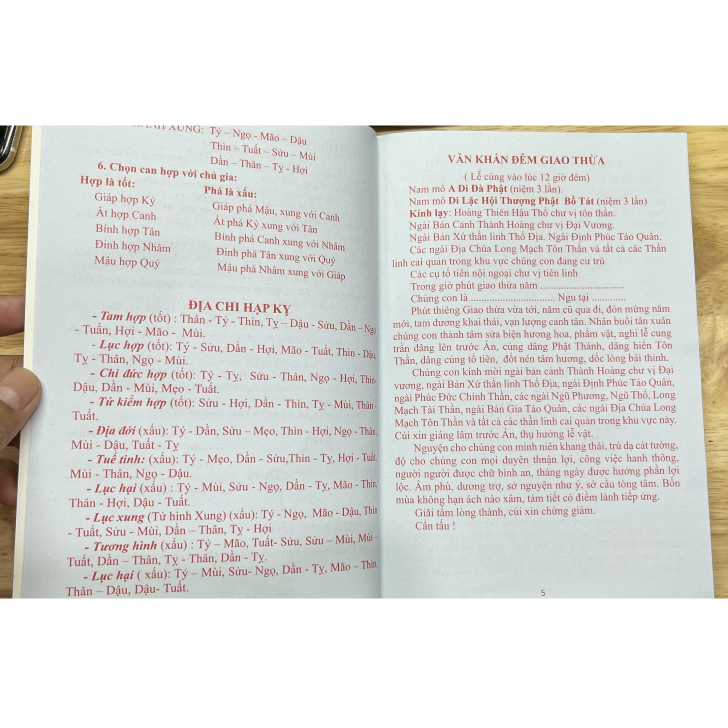 HÀNH XUNG: Tý – Ngọ - Mão – Dậu
Thìn – Tuất – Sửu – Mùi
Dần – Thân – Tỵ - Hợi
6. Chọn can hợp với chủ gia:
Hợp là tốt:
Giáp hợp Kỷ
Ất hợp Canh
Bính hợp Tân
Đinh hợp Nhâm
Mậu hợp Quý
Phá là xấu:
Giáp phá Mậu, xung với Canh
Ất phá Kỷ xung với Tân
Bính phá Canh xung với Nhâm
Đinh phá Tân xung với Quý
Mậu phá Nhâm xung với Giáp
ĐỊA CHI HẠP KỴ
- Tam hợp (tốt) : Thân - Tý - Thìn, Tỵ – Dậu - Sửu, Dần – Ngọ
- Tuấn, Hợi - Mão - Mùi.
- Lục hợp (tốt): Tý - Sửu, Dần - Hợi, Mão - Tuất, Thìn - Dậu,
Tỵ - Thân, Ngọ - Mùi.
- Chi đức hợp (tốt): Tý - Tỵ, Sửu - Thân, Ngọ - Hợi, Thìn-
Dậu, Dần - Mùi, Mẹo - Tuất.
- Tứ kiểm hợp (tốt): Sửu - Hợi, Dần - Thìn, Tỵ - Mùi, Thân-
Tuất.
- Địa đới (xấu): Tý - Dần, Sửu – Mẹo, Thìn - Hợi, Ngọ - Thân,
Mùi - Dậu, Tuất - Tỵ
- Tuế tinh: (xấu): Tý - Mẹo, Dần - Sửu,Thìn - Tỵ, Hợi - Tuất,
Mùi - Thân, Ngọ - Dậu.
- Lục hại (xấu) : Tý - Mùi, Sửu - Ngọ, Dần - Tỵ, Mão - Thìn,
Thân - Hợi, Dậu - Tuất.
- Lục xung (Tứ hình Xung) (xấu): Tý - Ngọ, Mão - Dậu, Thìn
- Tuất, Sửu - Mùi, Dần – Thân, Tỵ - Hợi
- Tương hình (xấu) : Tý – Mão, Tuất- Sửu, Sửu – Mùi, Mùi -
Tuất, Dần – Thân, Tỵ - Thân, Dần - Tỵ.
- Lục hại ( xấu): Tý – Mùi, Sửu- Ngọ, Dần - Tỵ, Mão – Thìn,
Thân – Dậu, Dậu- Tuất.
VĂN KHẤN ĐÊM GIAO THỪA
( Lễ cúng vào lúc 12 giờ đêm)
Nam mô A Di Đà Phật (niệm 3 lần).
Nam mô Di Lặc Hội Thượng Phật Bồ Tát (niệm 3 lần)
Kính lạy: Hoàng Thiên Hậu Thổ chư vị tôn thần.
Ngài Bản Cảnh Thành Hoàng chư vị Đại Vương.
Ngài Bản Xứ thần linh Thổ Địa, Ngài Định Phúc Táo Quân,
Các ngài Địa Chúa Long Mạch Tôn Thần và tất cả các Thần
linh cai quản trong khu vực chúng con đang cư trú
Các cụ tổ tiên nội ngoại chư vị tiên linh
Trong giờ phút giao thừa năm ..............................
Chúng con là .............................. Ngụ tại ............
Phút thiêng Giao thừa vừa tới, năm cũ qua đi, đón mừng năm
mới, tam dương khai thái, vạn lượng canh tân. Nhân buổi tân xuân
chúng con thành tâm sửa biện hương hoa, phẩm vật, nghi lễ cung
trần dâng lên trước Án, cúng dâng Phật Thánh, dâng hiến Tôn
Thần, dâng cúng tổ tiên, đốt nén tâm hương, dốc lòng bái thỉnh.
Chúng con kính mời ngài bản cảnh Thành Hoàng chư vị Đại
vương, ngài Bản Xứ thần linh Thổ Địa, ngài Định Phúc Táo Quân,
ngài Phúc Đức Chính Thần, các ngài Ngũ Phương, Ngũ Thổ, Long
Mạch Tài Thần, ngài Bản Gia Táo Quân, các ngài Địa Chúa Long
Mạch Tôn Thần và tất cả các thần linh cai quản trong khu vực này.
Cúi xin giáng lâm trước Án, thụ hưởng lễ vật.
Nguyện cho chúng con minh niên khang thái, trú dạ cát tường,
độ cho chúng con mọi duyên thuận lợi, công việc hanh thông,
người người được chữ bình an, tháng ngày được hưởng phần lợi
lộc. Âm phù, dương trợ, sở nguyện như ý, sở cầu tòng tâm. Bốn
mùa không hạn ách nào xâm, tám tiết có điềm lành tiếp ứng.
Giãi tấm lòng thành, cúi xin chứng giám.
Cẩn tấu !
5